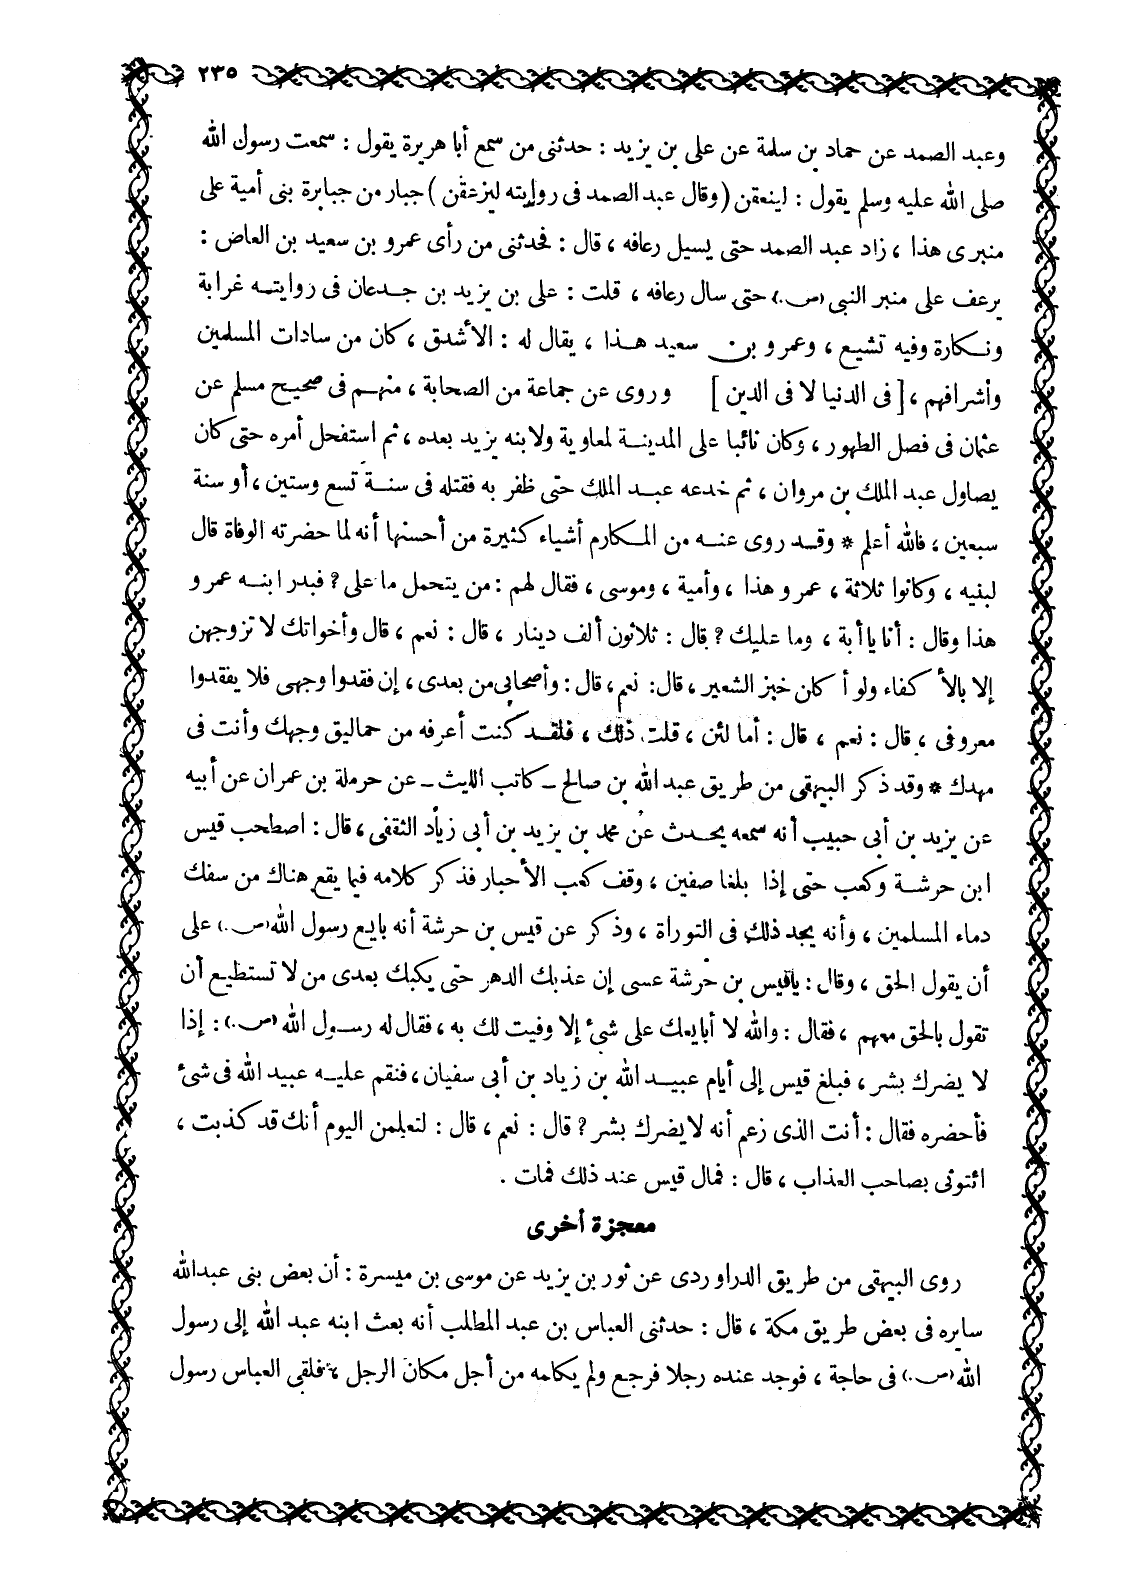 ٢٣٥
وعبد الصمد عن حماد بن سلمة عن على بن يزيد : حدثنى من سمع أبا هريرة يقول : سمعت رسول الله
صلى الله عليه وسلم يقول : لينعقن ( وقال عبد الصمد فى روايته ليزعقن ) جبار من جبابرة بنى أمية على
منبرى هذا ، زاد عبد الصمد حتى يسيل رعافه ، قال : فحدثنى من رأى عمرو بن سعيد بن العاص :
يرعف على منبر النبى (ص.) حتى سال رعافه ، قلت : على بن يزيد بن جدعان فى روايته غرابة
ونكارة وفيه تشيع ، وعمرو بن سعيد هذا ، يقال له : الأشدق ، كان من سادات المسلمين
وأشرافهم ، [ فى الدنيا لا فى الدين ] وروى عن جماعة من الصحابة ، منهم فى صحيح مسلم عن
عثمان فى فصل الطهور ، وكان نائبا على المدينة لمعاوية ولابنه يزيد بعده ، ثم استفحل أمره حتى كان
يصاول عبد الملك بن مروان ، ثم خدعه عبد الملك حتى ظفر به فقتله فى سنة تسع وستين ، أو سنة
سبعين ، فالله أعلم * وقد روى عنه من المكارم أشياء كثيرة من أحسنها أنه لما حضرته الوفاة قال
لبنيه ، وكانوا ثلاثة ، عمرو هذا ، وأمية ، وموسى ، فقال لهم : من يتحمل ما على ? فبدر ابنه عمرو
هذا وقال : أنا يا أبة ، وما عليك ? قال : ثلاثون ألف دينار ، قال : نعم ، قال وأخواتك لا تزوجهن
إلا بالأ كفاء ولو أ كان خبز الشعير ، قال : نعم ، قال : وأصحابى من بعدى ، إن فقدوا وجهى فلا يفقدوا
معروفى ، قال : نعم ، قال : أما لئن ، قلت ذلك ، فلقد كنت أعرفه من حماليق وجهك وأنت فى
مهدك * وقد ذكر البيهقى من طريق عبد الله بن صالح - كاتب الليث - عن حرملة بن عمران عن أبيه
عن يزيد بن أبى حبيب أنه سمعه يحدث عن محمد بن يزيد بن أبى زياد الثقفى ، قال : اصطحب قيس
ابن حرشة وكعب حتى إذا بلغا صفين ، وقف كعب الأحبار فذكر كلامه فيما يقع هناك من سفك
دماء المسلمين ، وأنه يجد ذلك فى التوراة ، وذكر عن قيس بن حرشة أنه بايع رسول الله (ص.) على
أن يقول الحق ، وقال : يا قيس بن حرشة عسى إن عذبك الدهر حتى يكبك بعدى من لا تستطيع أن
تقول بالحق معهم ، فقال : والله لا أبايعك على شئ إلا وفيت لك به ، فقال له رسول الله (ص.) : إذا
لا يضرك بشر ، فبلغ قيس إلى أيام عبيد الله بن زياد بن أبى سفيان ، فنقم عليه عبيد الله فى شئ
فأحضره فقال : أنت الذى زعم أنه لا يضرك بشر ? قال : نعم ، قال : لتعلمن اليوم أنك قد كذبت ،
ائتونى بصاحب العذاب ، قال : فمال قيس عند ذلك فمات .
معجزة أخرى
روى البيهقى من طريق الدراوردى عن ثور بن يزيد عن موسى بن ميسرة : أن بعض بنى عبد الله
سايره فى بعض طريق مكة ، قال : حدثنى العباس بن عبد المطلب أنه بعث ابنه عبد الله إلى رسول
الله (ص.) فى حاجة ، فوجد عنده رجلا فرجع ولم يكلمه من أجل مكان الرجل ، فلقى العباس رسول